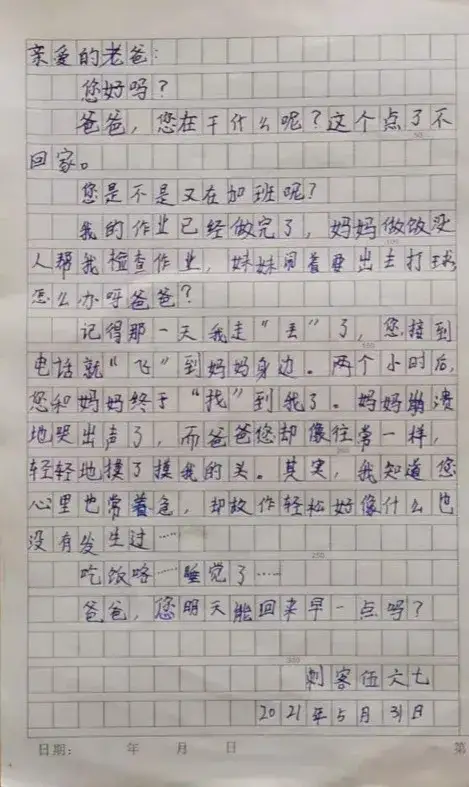 亲爱的老爸:
您好吗?
爸爸,您在干什么呢?这个点了不
回家。
您是不是又在加班呢?
我的作业已经做完了,妈妈做饭没
人帮我检查作业,妹妹闹着要出去打球
怎么办呀爸爸?
记得那一天我走“丢”了,您接到
电话就“飞”到妈妈身边。两个小时后,
您和妈妈终于“找”到我了。妈妈崩溃
地哭出声了,而爸爸您却像往常一样,
轻轻地摸了摸我的头。其实,我知道您
心里也常着急,却故作轻松好像什么也
没有发生过……
吃饭咯……睡觉了……
爸爸,您明天能回来早一点吗?
刺客伍六七
2021年5月31日
日期: 年 月 日 第